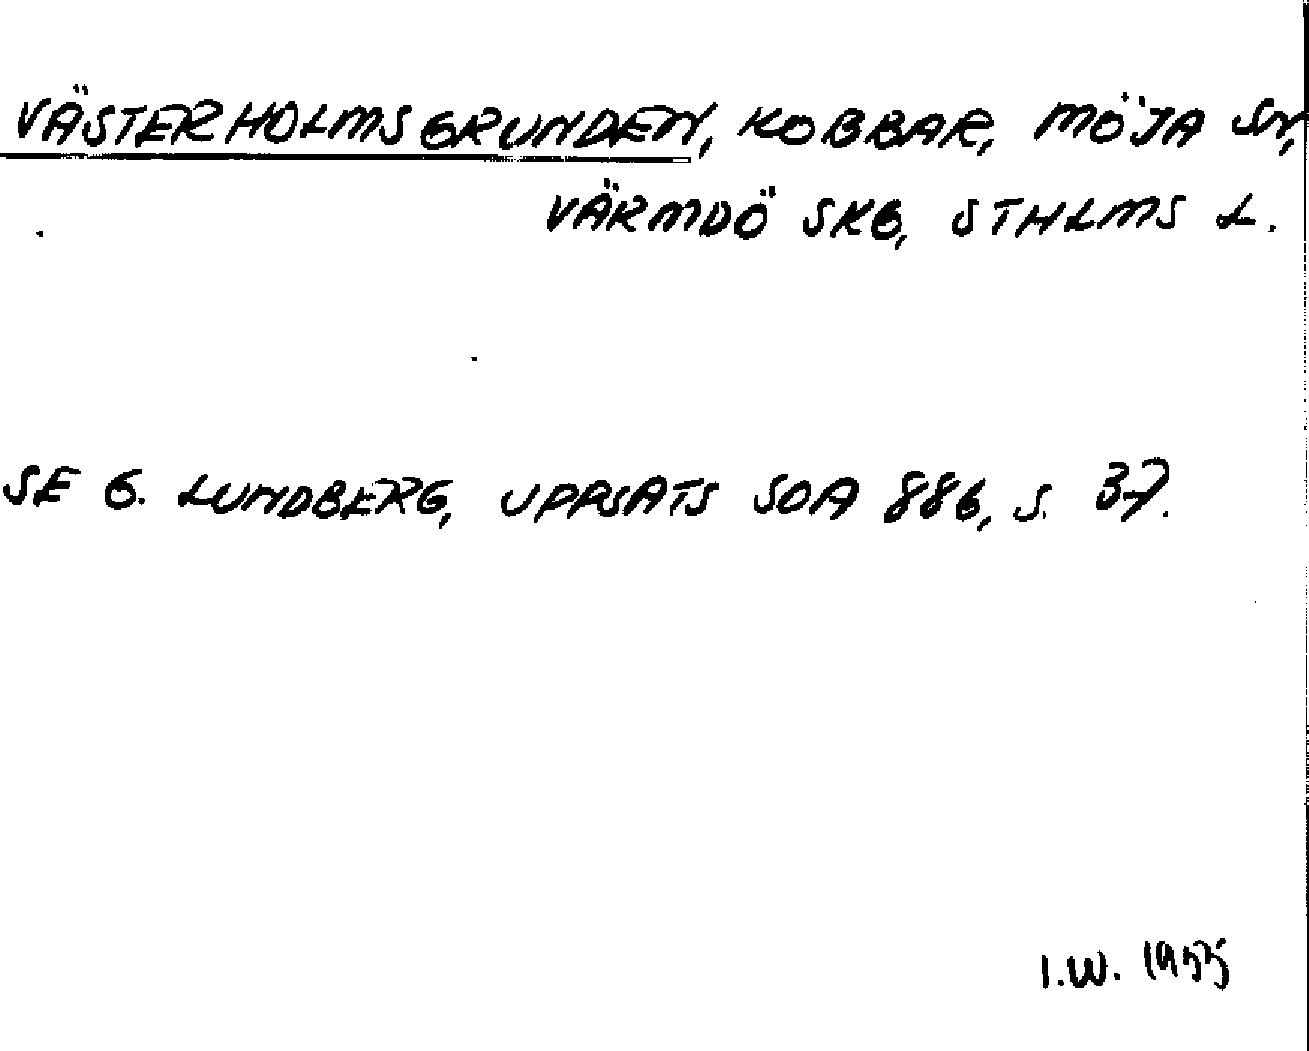 VÄSTERHOLMSGRUNDEN, KOBBAR, MÖJA SN,
VÄRMDÖ SKG, STHLMS L.
SE G. LUNDBERG, UPPSATS SOA 886, S. 37.
I.W. 1955